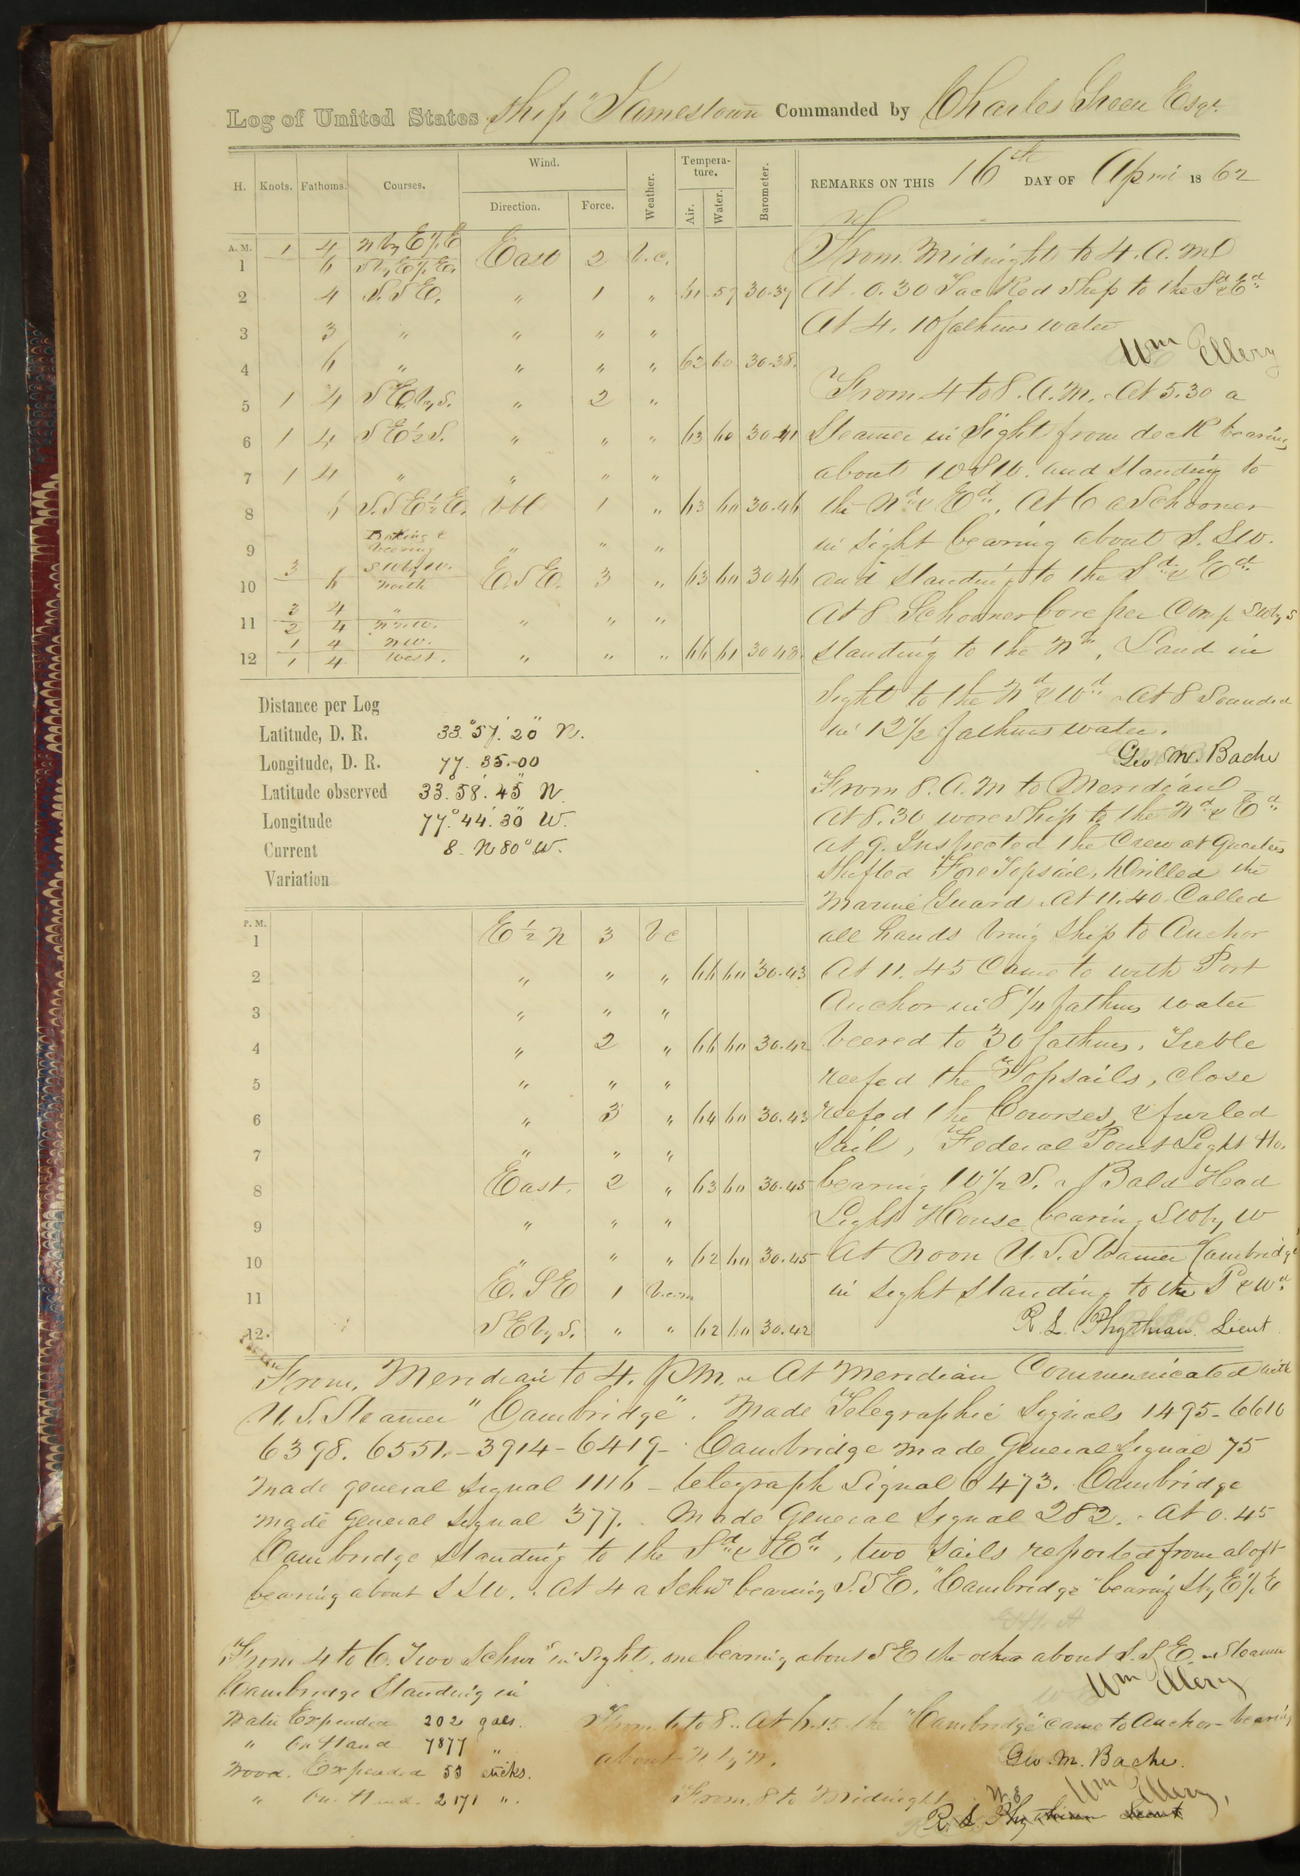 Log of United States Ship "Jamestown Commanded by Charles Green Esqr.
H. Knots. Fathoms. Courses. Wind. Direction. Force. Weather. Tempera-ture. Air. Water. Barometer.
REMARKS ON THIS 16th DAY OF April 1862
A.M.
1 1 4 N by E ½ E East 2 b.c.
6 S by E ½ E.
2 4 S.S.E. " 1 " 61 59 30.37
3 3 " " " "
4 6 " " " " 62 60 30.38.
5 1 4 SE by S. " 2 "
6 1 4 SE ½ S. " " " 63 60 30.41
7 1 4 " " " "
8 6 S.S.E ½ E. 1 " 63 60 30.46
9 " " "
veering
SW by W.
10 3 6 North E.S.E. 3 " 63 60 30 46
11 3 4 " " " "
2 4 NNW.
12 1 4 NW. " " " 66 61 30 48.
1 4 West.
From Midnight to 4. A.M
At 0.30 Tacked Ship to the Sd & Ed
At 4. 10 fathms water
Wm Ellery
From 4 to 8. A.M. At 5.30 a
Steamer in Sight from deck bearing
about WSW. and standing to
the Nd & Ed. At 6 a Schooner
in sight bearing about S. SW.
and standing to the Sd & Ed
At 8 Schooner bore per Comp SW by S
standing to the Nd. Land in
sight to the Nd & Wd At 8 Sounded
in 12½ fathms water.
Geo M. Bache
From 8. A.M to Meridian
At 8.30 wore Ship to the Nd & Ed
At 9. Inspected the Crew at Quarters
Shifted Fore Topsail, Drilled the
Marine Guard. At 11.40 Called
all hands bring Ship to Anchor
At 11.45 Came to with Port
Anchor in 8¼ fathms water
Veered to 30 fathms. Treble
reefed the Topsails, close
reefed the Courses, & furled
sail, Federal Point Light Ho.
bearing W½ S. & Bald Head
Light House bearing SW by W
At noon U.S. Steamer Cambridge
in sight standing to the S & Wd
R. L. Phythian. Lieut
Distance per Log
Latitude, D. R. 33° 57' 20" N.
Longitude, D. R. 77. 35. 00
Latitude observed 33° 58' 45" N
Longitude 77° 44' 30" W.
Current 8. N 80° W.
Variation
P.M.
1 E ½ N 3 b c
2 " " " 66 60 30.43
3 " " "
4 " 2 " 66 60 30.42
5 " " "
6 " 3 " 64 60 30.43
7 " " "
8 East. 2 " 63 60 30.45
9 " " "
10 " " " 62 60 30.45
11 E. SE 1 b.c.m
12. SE by S. " " 62 60 30.42
From Meridian to 4. PM. At Meridian Communicated with
U.S. Steamer "Cambridge". Made Telegraphic Signals 1495-6610
6398. 6551.- 3914- 6419- Cambridge made General Signal 75
Made general signal 1116 - telegraph Signal 6473. Cambridge
made General Signal 377. Made General Signal 282. At 0.45
Cambridge Standing to the Sd & Ed, two sails reported from aloft
bearing about SSW. At 4 a Schr bearing S.S.E. "Cambridge" bearing S by E ½ E
From 4 to 6. Two Schrs in sight, one bearing about SE the other about S.S.E. Steamer
Cambridge Standing in
Wm Ellery
Water Expended 202 gals.
" On Hand 7877 "
Wood. Expended 53 sticks.
" On Hand. 2171 ".
From 6 to 8.. At 6.15 the "Cambridge" came to Anchor bearing
about N by N.
Geo. M. Bache.
From 8 to Midnight
Wm Ellery,
R L Phythian Lieut